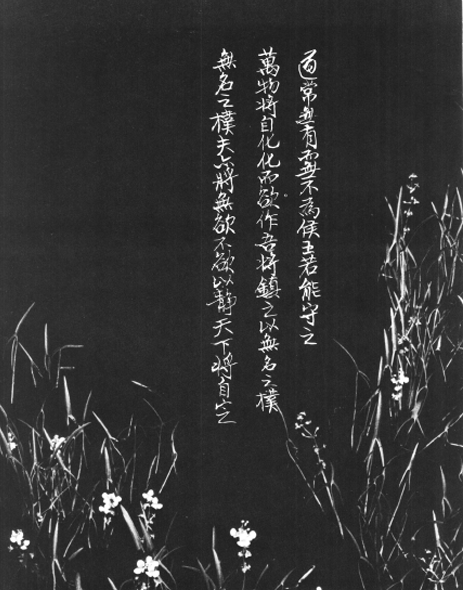 道常無有而無不為侯王若能守之
萬物將自化化而欲作吾將鎮之以無名之樸
無名之樸夫亦將無欲不欲以靜天下將自定